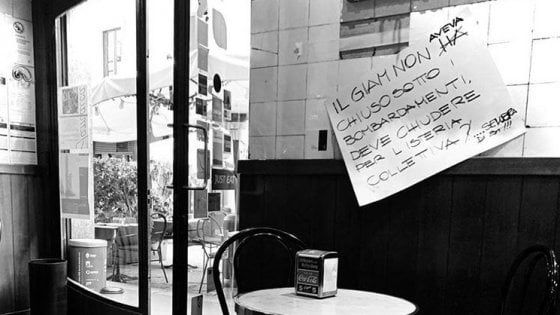 AVEVA
IL GIAM NON HA
CHIUSO SOTTO
BOMBARDAMENTI,
DEVE CHIUDERE
PER L'ISTERIA
COLLETTIVA?
SEMBRA
DI SI!!!
JUST EAT
Coca-Cola